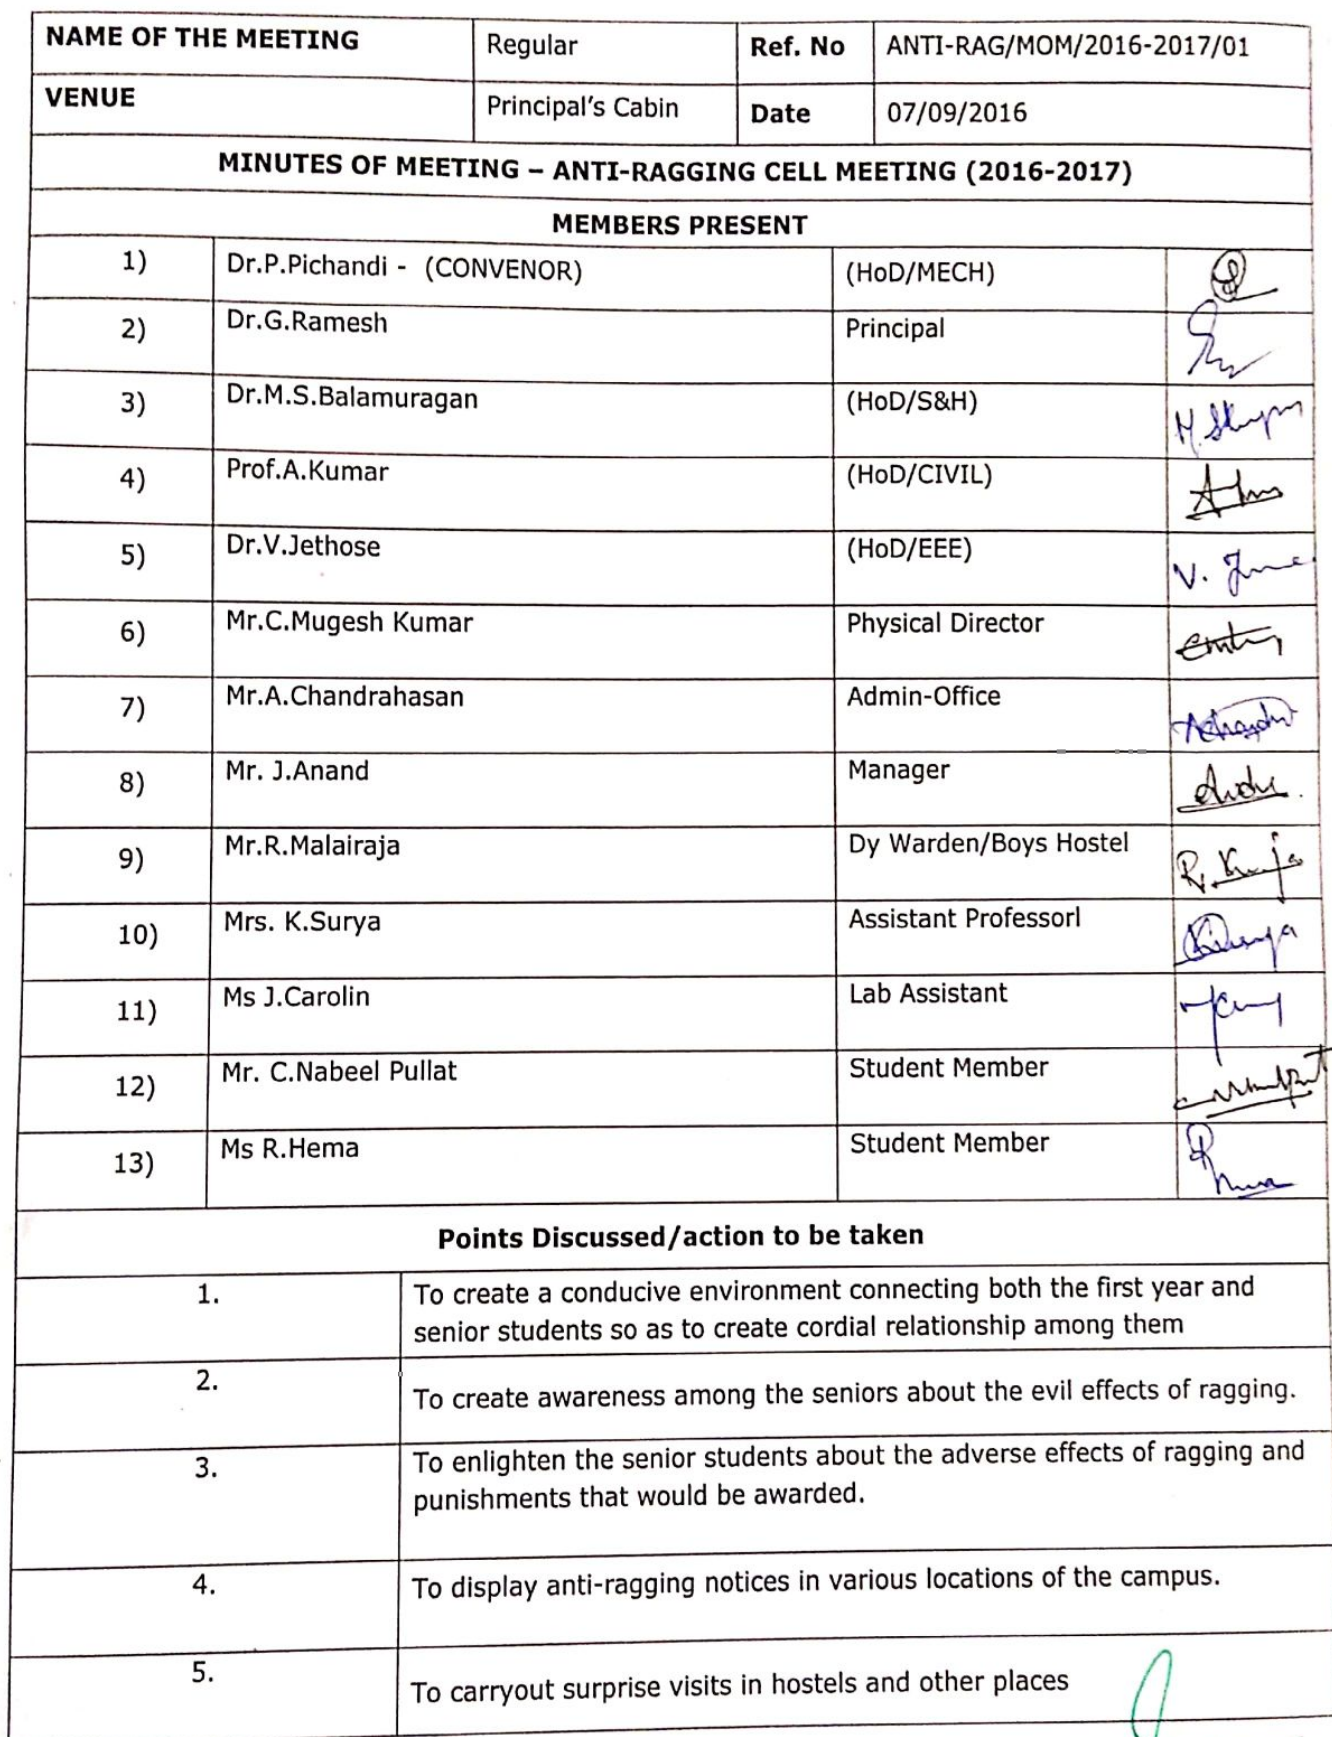 NAME OF THE MEETING Regular Ref. No ANTI-RAG/MOM/2016-2017/01
VENUE Principal's Cabin Date 07/09/2016
MINUTES OF MEETING – ANTI-RAGGING CELL MEETING (2016-2017)
MEMBERS PRESENT
1) Dr.P.Pichandi - (CONVENOR) (HoD/MECH)
2) Dr.G.Ramesh Principal
3) Dr.M.S.Balamuragan (HoD/S&H)
4) Prof.A.Kumar (HoD/CIVIL)
5) Dr.V.Jethose (HoD/EEE)
6) Mr.C.Mugesh Kumar Physical Director
7) Mr.A.Chandrahasan Admin-Office
8) Mr. J.Anand Manager
9) Mr.R.Malairaja Dy Warden/Boys Hostel
10) Mrs. K.Surya Assistant Professorl
11) Ms J.Carolin Lab Assistant
12) Mr. C.Nabeel Pullat Student Member
13) Ms R.Hema Student Member
Points Discussed/action to be taken
1. To create a conducive environment connecting both the first year and
senior students so as to create cordial relationship among them
2. To create awareness among the seniors about the evil effects of ragging.
3. To enlighten the senior students about the adverse effects of ragging and
punishments that would be awarded.
4. To display anti-ragging notices in various locations of the campus.
5. To carryout surprise visits in hostels and other places